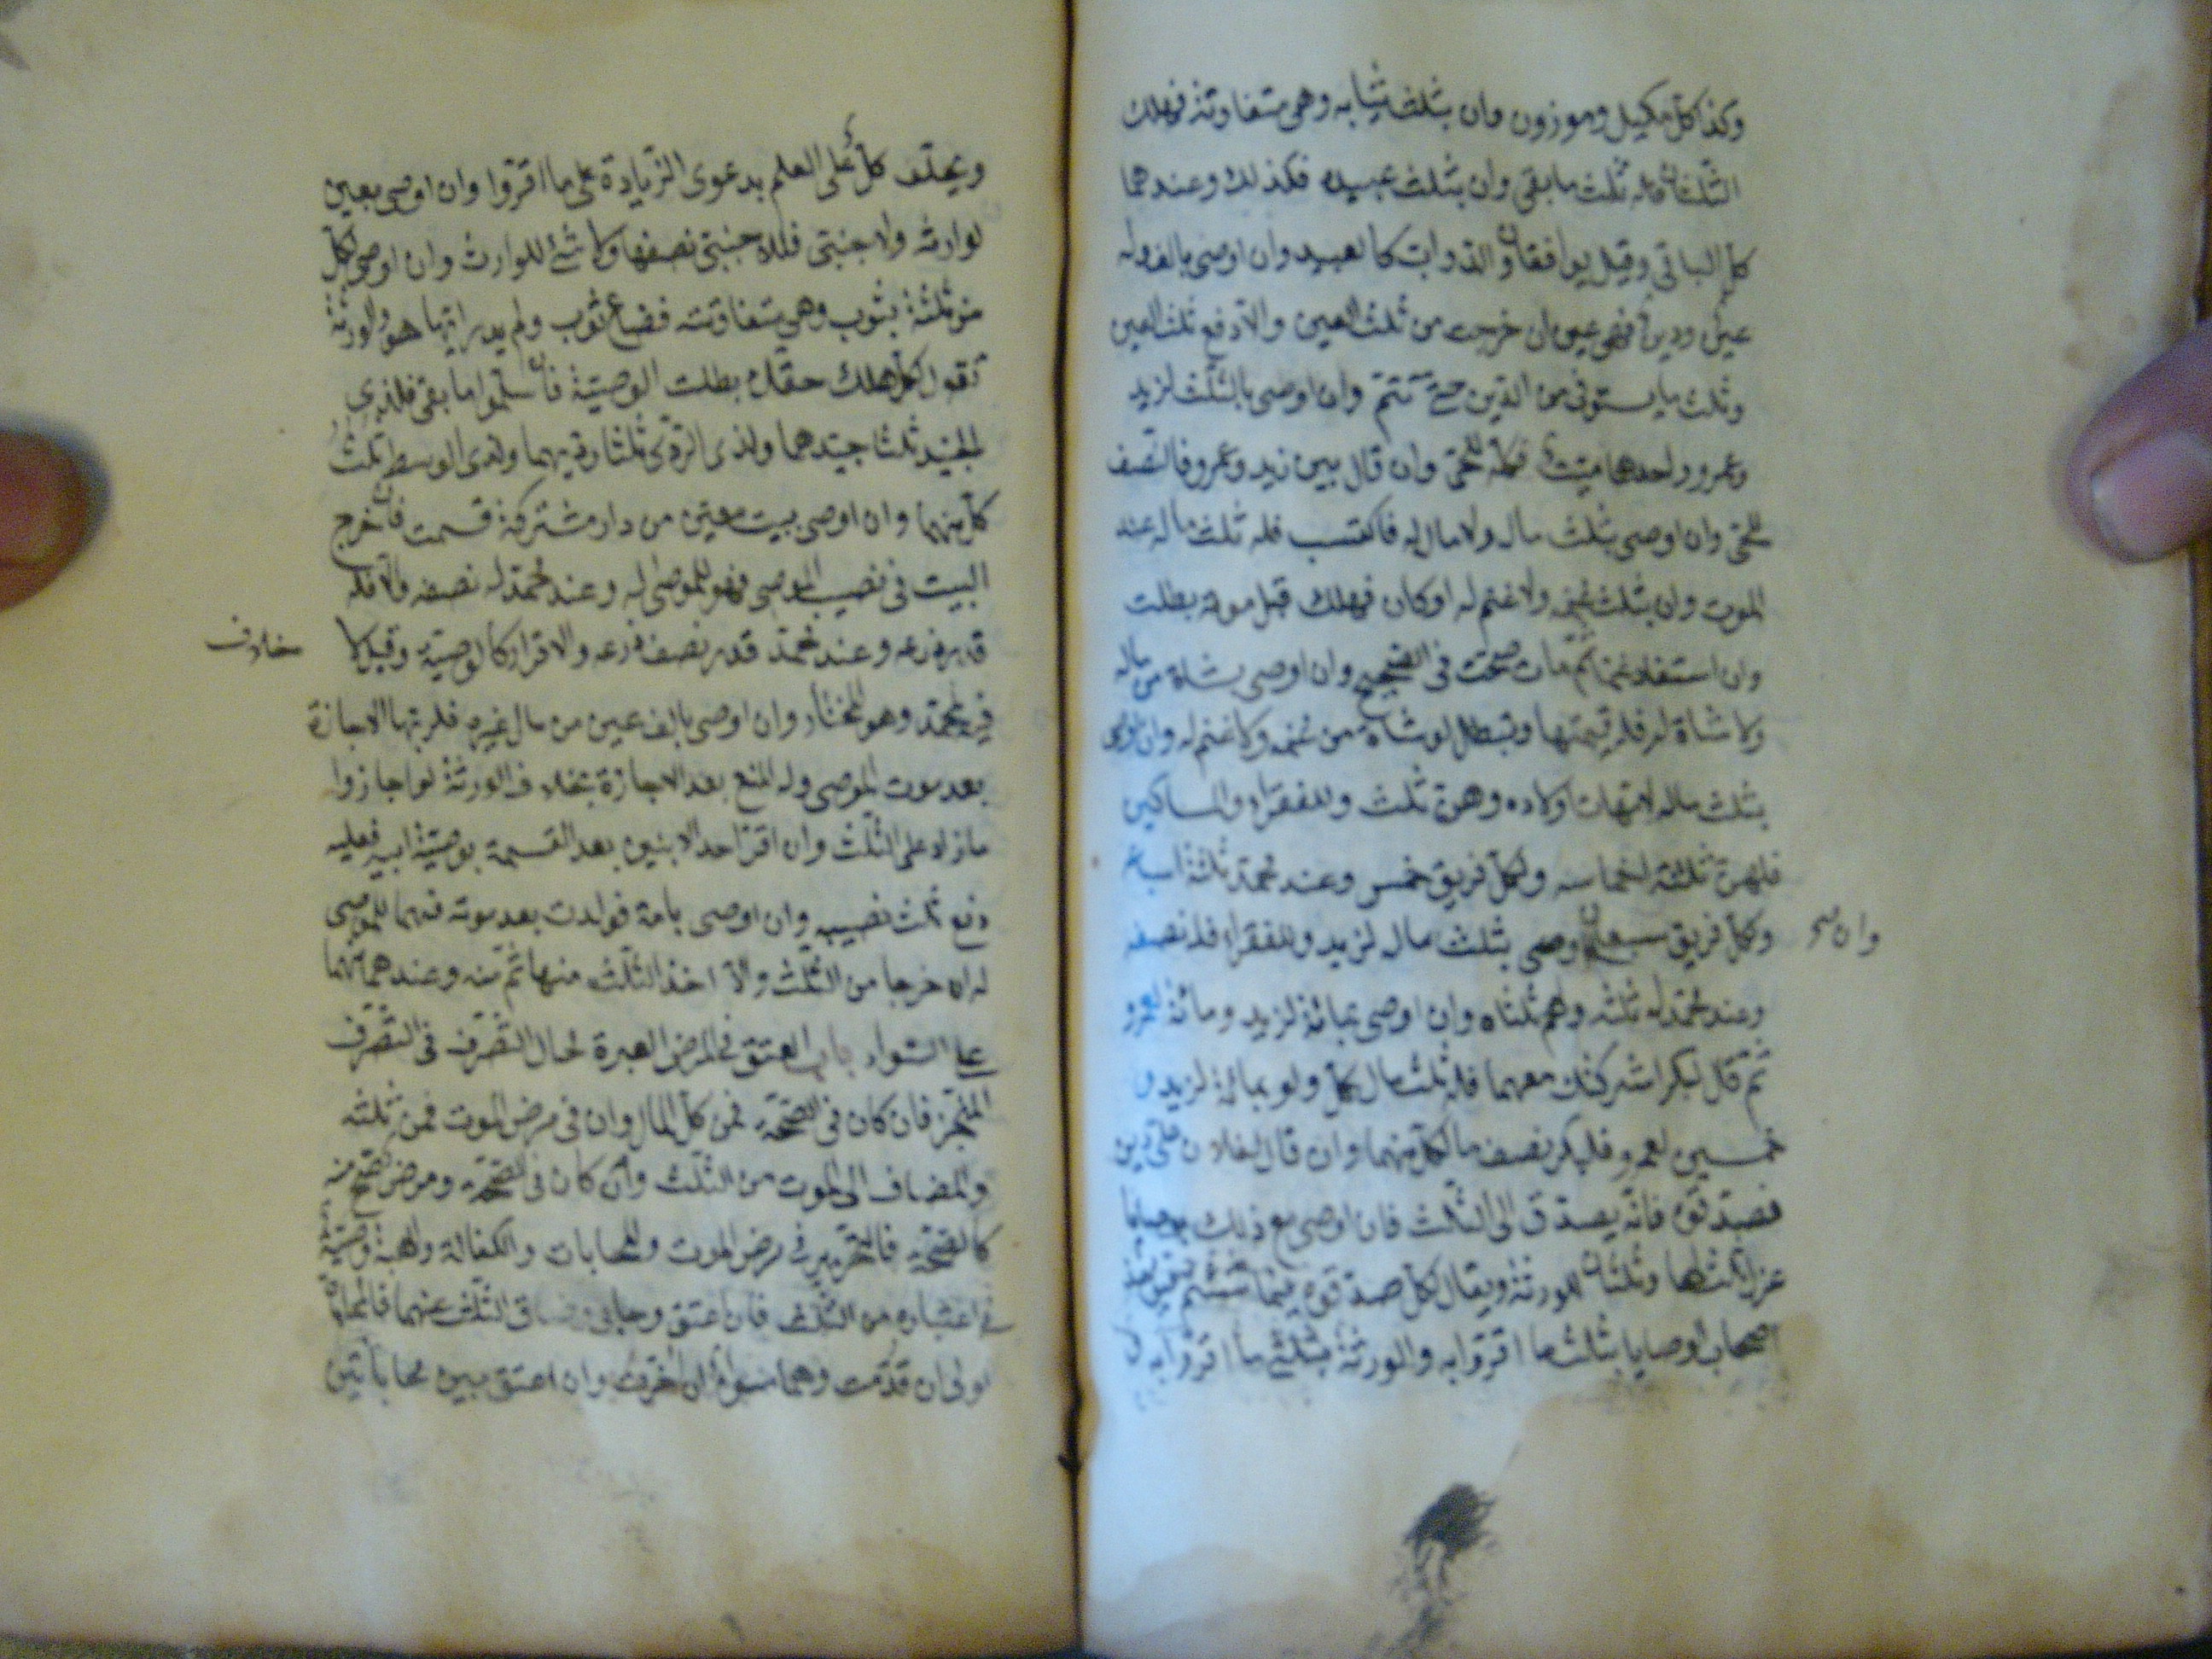 وكذا كل مكيل وموزون وان بثلث ثيابه وهى متفاوتة فهلك
الثلثان فله ثلث ما بقى وان بثلث عبيده فكذلك وعندهما
كل الباقى وقيل يوافقان والدواب كالعبيد وان اوصى بالف وله
عين ودين فهى عين ان خرجت من ثلث العين والا دفع ثلث العين
وثلث ما يستوفى من الدين حتى تتم وان اوصى بالثلث لزيد
وعمرو واحدهما ميت فكله للحى وان قال بين زيد وعمرو فالنصف
للحى وان اوصى بثلث ماله ولا مال له فاكتسب فله ثلث ماله عند
الموت وان بثلث غنمه ولا غنم له او كان فهلك قبل موته بطلت
وان استفاد غنما ثم مات صحت فى الصحيح وان اوصى بشاة من ماله
ولا شاة له فله قيمتها وتبطل لو بشاة من غنمه ولا غنم له وان اوصى
بثلث ماله لامهات اولاده وهن ثلث وللفقراء والمساكين
فلهن ثلثة اخماسه ولكل فريق خمس وعند محمد ثلثة اسباع
ولكل فريق سبعان اوصى بثلث ماله لزيد وللفقراء فله نصفه
وان صح
وعند محمد له ثلثه ولهم ثلثاه وان اوصى بمائة لزيد ومائة لعمرو
ثم قال لبكر اشركتك معهما فله ثلث مال كل ولو بمائة لزيد و
خمسين لعمرو فلبكر نصف ما لكل منهما وان قال لفلان على دين
فصدقوه فانه يصدق الى الثلث فان اوصى مع ذلك بوصايا
عزل الثلث لها وثلثان للورثة ويقال لكل صدقوه فيما شئتم
اصحاب الوصايا بثلث ما اقروا به والورثة بثلثى ما اقروا به
ويحلف كل على العلم بدعوى الزيادة على ما اقروا وان اوصى بعين
لوارثه ولاجنبى فللاجنبى نصفها ولا شئ للوارث وان اوصى لكل
من ثلثة بثوب وهى متفاوتة فضاع ثوب ولم يدر ايها هو والورثة
تقول لكل هلك حقك بطلت الوصية فان سلموا ما بقى فلذى
الجيد ثلثا جيدهما ولذى الردى ثلثا رديهما ولذى الوسط ثلث
كل منهما وان اوصى ببيت معين من دار مشتركة قسمت فان خرج
البيت فى نصيب الموصى فهو للموصى له وعند محمد له نصفه والا فله
قدر ذرعه وعند محمد قدر نصف ذرعه والاقرار كالوصية وقيل لا
خلاف
فيه لمحمد وهو المختار وان اوصى بالف عين من مال غيره فلربها الاجازة
بعد موت الموصى وله المنع بعد الاجازة بخلاف الورثة لو اجازوا
ما زاد على الثلث وان اقر احد الابنين بعد القسمة بوصية ابيه فعليه
دفع ثلث نصيبه وان اوصى بامة فولدت بعد موته فهما للموصى
له ان خرجا من الثلث والا اخذ الثلث منها ثم منه وعندهما منهما
على السواء باب العتق فى المرض العبرة لحال التصرف فى التصرف
المنجز فان كان فى الصحة فمن كل المال وان فى مرض الموت فمن ثلثه
والمضاف الى الموت من الثلث وان كان فى الصحة ومرض صح منه
كالصحة فالتحرير فى مرض الموت والمحابات والكفالة والهبة وصية
فى اعتباره من الثلث فان اعتق وحابى وضاق الثلث عنهما فالمحاباة
اولى ان قدمت وهما سواء ان اخرت وان اعتق بين محاباتين